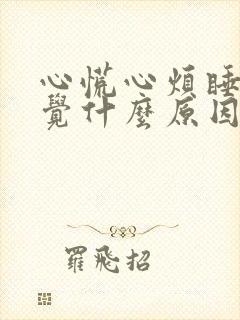 心慌心煩睡
覺什麼原因
羅飛招